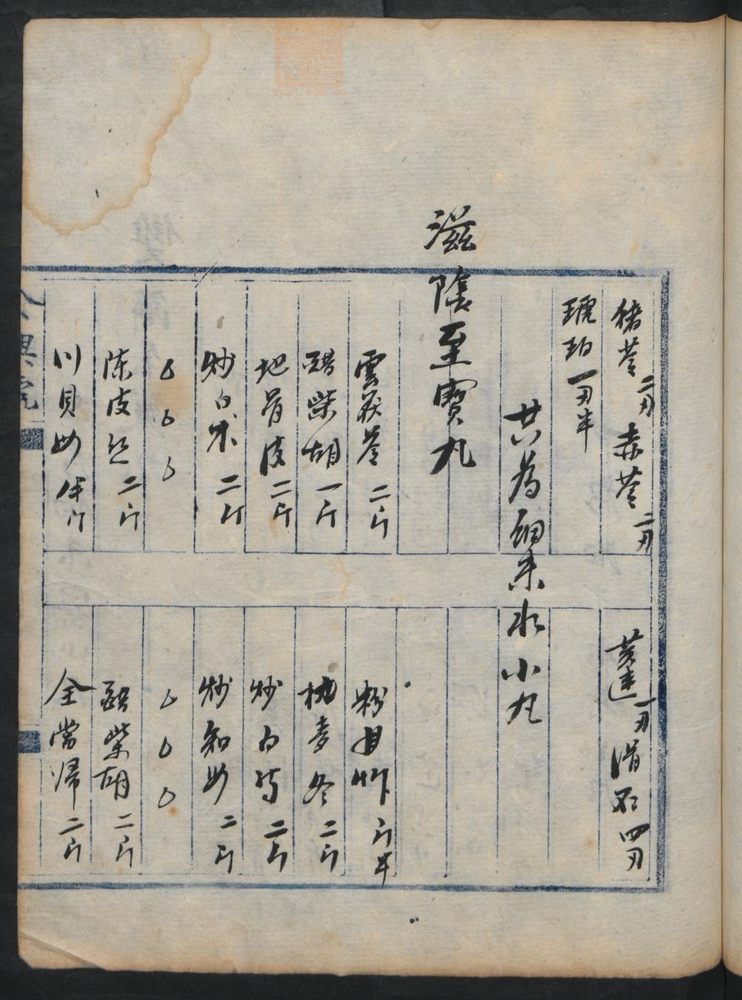 猪苓二刃 赤苓二刃 黃連一刃 滑石四刃
琥珀一刃半
共為細末水小丸
滋陰至寶丸
雲茯苓二斤 粉甘草 斤半
醋柴胡一斤 杭麥冬二斤
地骨皮二斤 炒白芍二斤
炒白朮二斤 炒知母二斤
陳皮 二斤 醋柴胡二斤
川貝母半斤 全當歸二斤